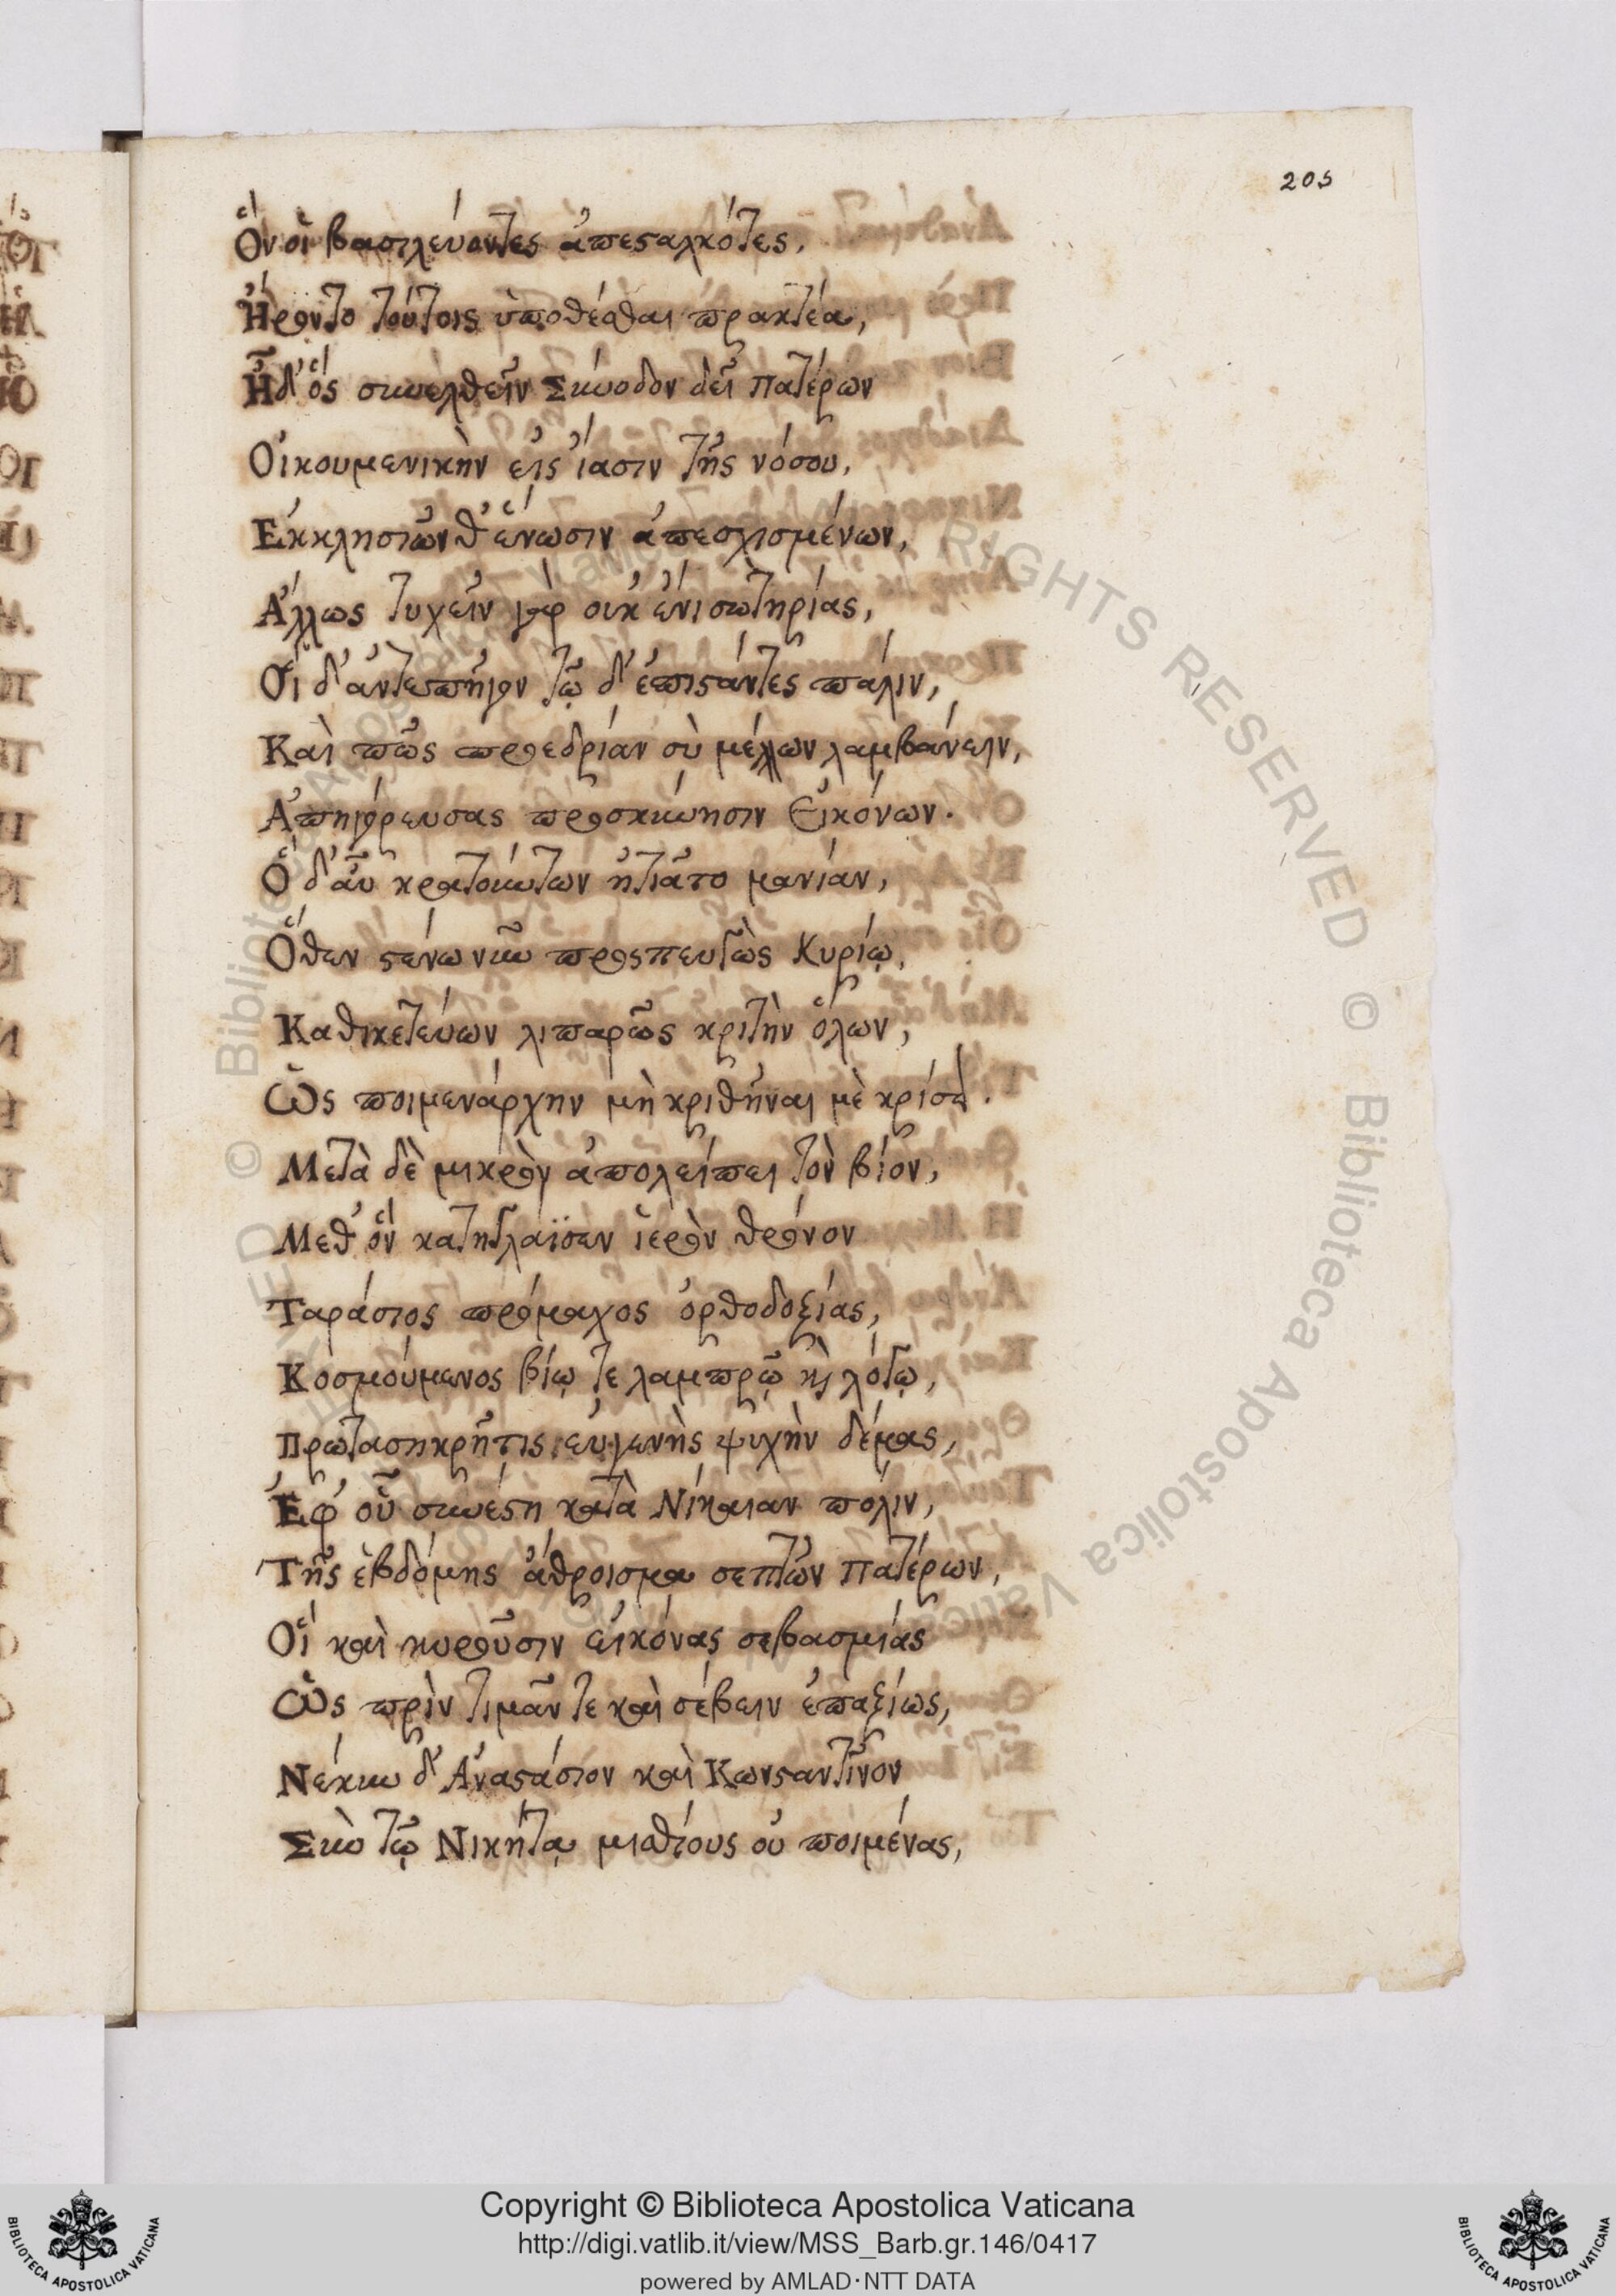 205
Ὃν οἱ βασιλεύοντες ἀπεσταλκότες,
Ἤροντο τούτοις ὑποθέσθαι πρακτέα,
Ἦ δ' ὃς συνελθεῖν Σύνοδον δεῖ Πατέρων
Οἰκουμενικὴν εἰς ἴασιν τῆς νόσου,
Ἐκκλησιῶν θ' ἕνωσιν ἀπεσχισμένων,
Ἄλλως τυχεῖν γὰρ οὐκ ἔνι σωτηρίας,
Οἱ δ' ἀντεπῆγον τῷ δ' ἐπιστάντες πάλιν,
Καὶ πῶς προεδρίαν σὺ μέλλων λαμβάνειν,
Ἀπηγόρευσας προσκύνησιν Εἰκόνων.
Ὁ δ' αὖ κρατούντων ᾐτιᾶτο μανίαν,
Ὅθεν στένω νῦν προσπευτὼς Κυρίῳ,
Καθικετεύων λιπαρῶς κριτὴν ὅλων,
Ὡς ποιμενάρχην μὴ κριθῆναι μὲ κρίσει.
Μετὰ δὲ μικρὸν ἀπολείπει τὸν βίον,
Μεθ' ὃν κατηγλάϊσεν ἱερὸν θρόνον
Ταράσιος πρόμαχος ὀρθοδοξίας,
Κοσμούμενος βίῳ τε λαμπρῷ κὶ λόγῳ,
Πρωτασηκρῆτις εὐγενὴς ψυχὴν δέμας,
Ἐφ' οὗ συνέστη κατὰ Νίκαιαν πόλιν,
Τῆς ἑβδόμης ἄθροισμα σεπτῶν Πατέρων,
Οἳ καὶ κυροῦσιν εἰκόνας σεβασμίας
Ὡς πρὶν τιμᾶν τε καὶ σέβειν ἐπαξίως,
Νέκυν δ' Ἀναστάσιον καὶ Κωνσταντῖνον
Σὺν τῷ Νικήτᾳ μισθίους οὐ ποιμένας,
Copyright © Biblioteca Apostolica Vaticana
http://digi.vatlib.it/view/MSS_Barb.gr.146/0417
powered by AMLAD·NTT DATA